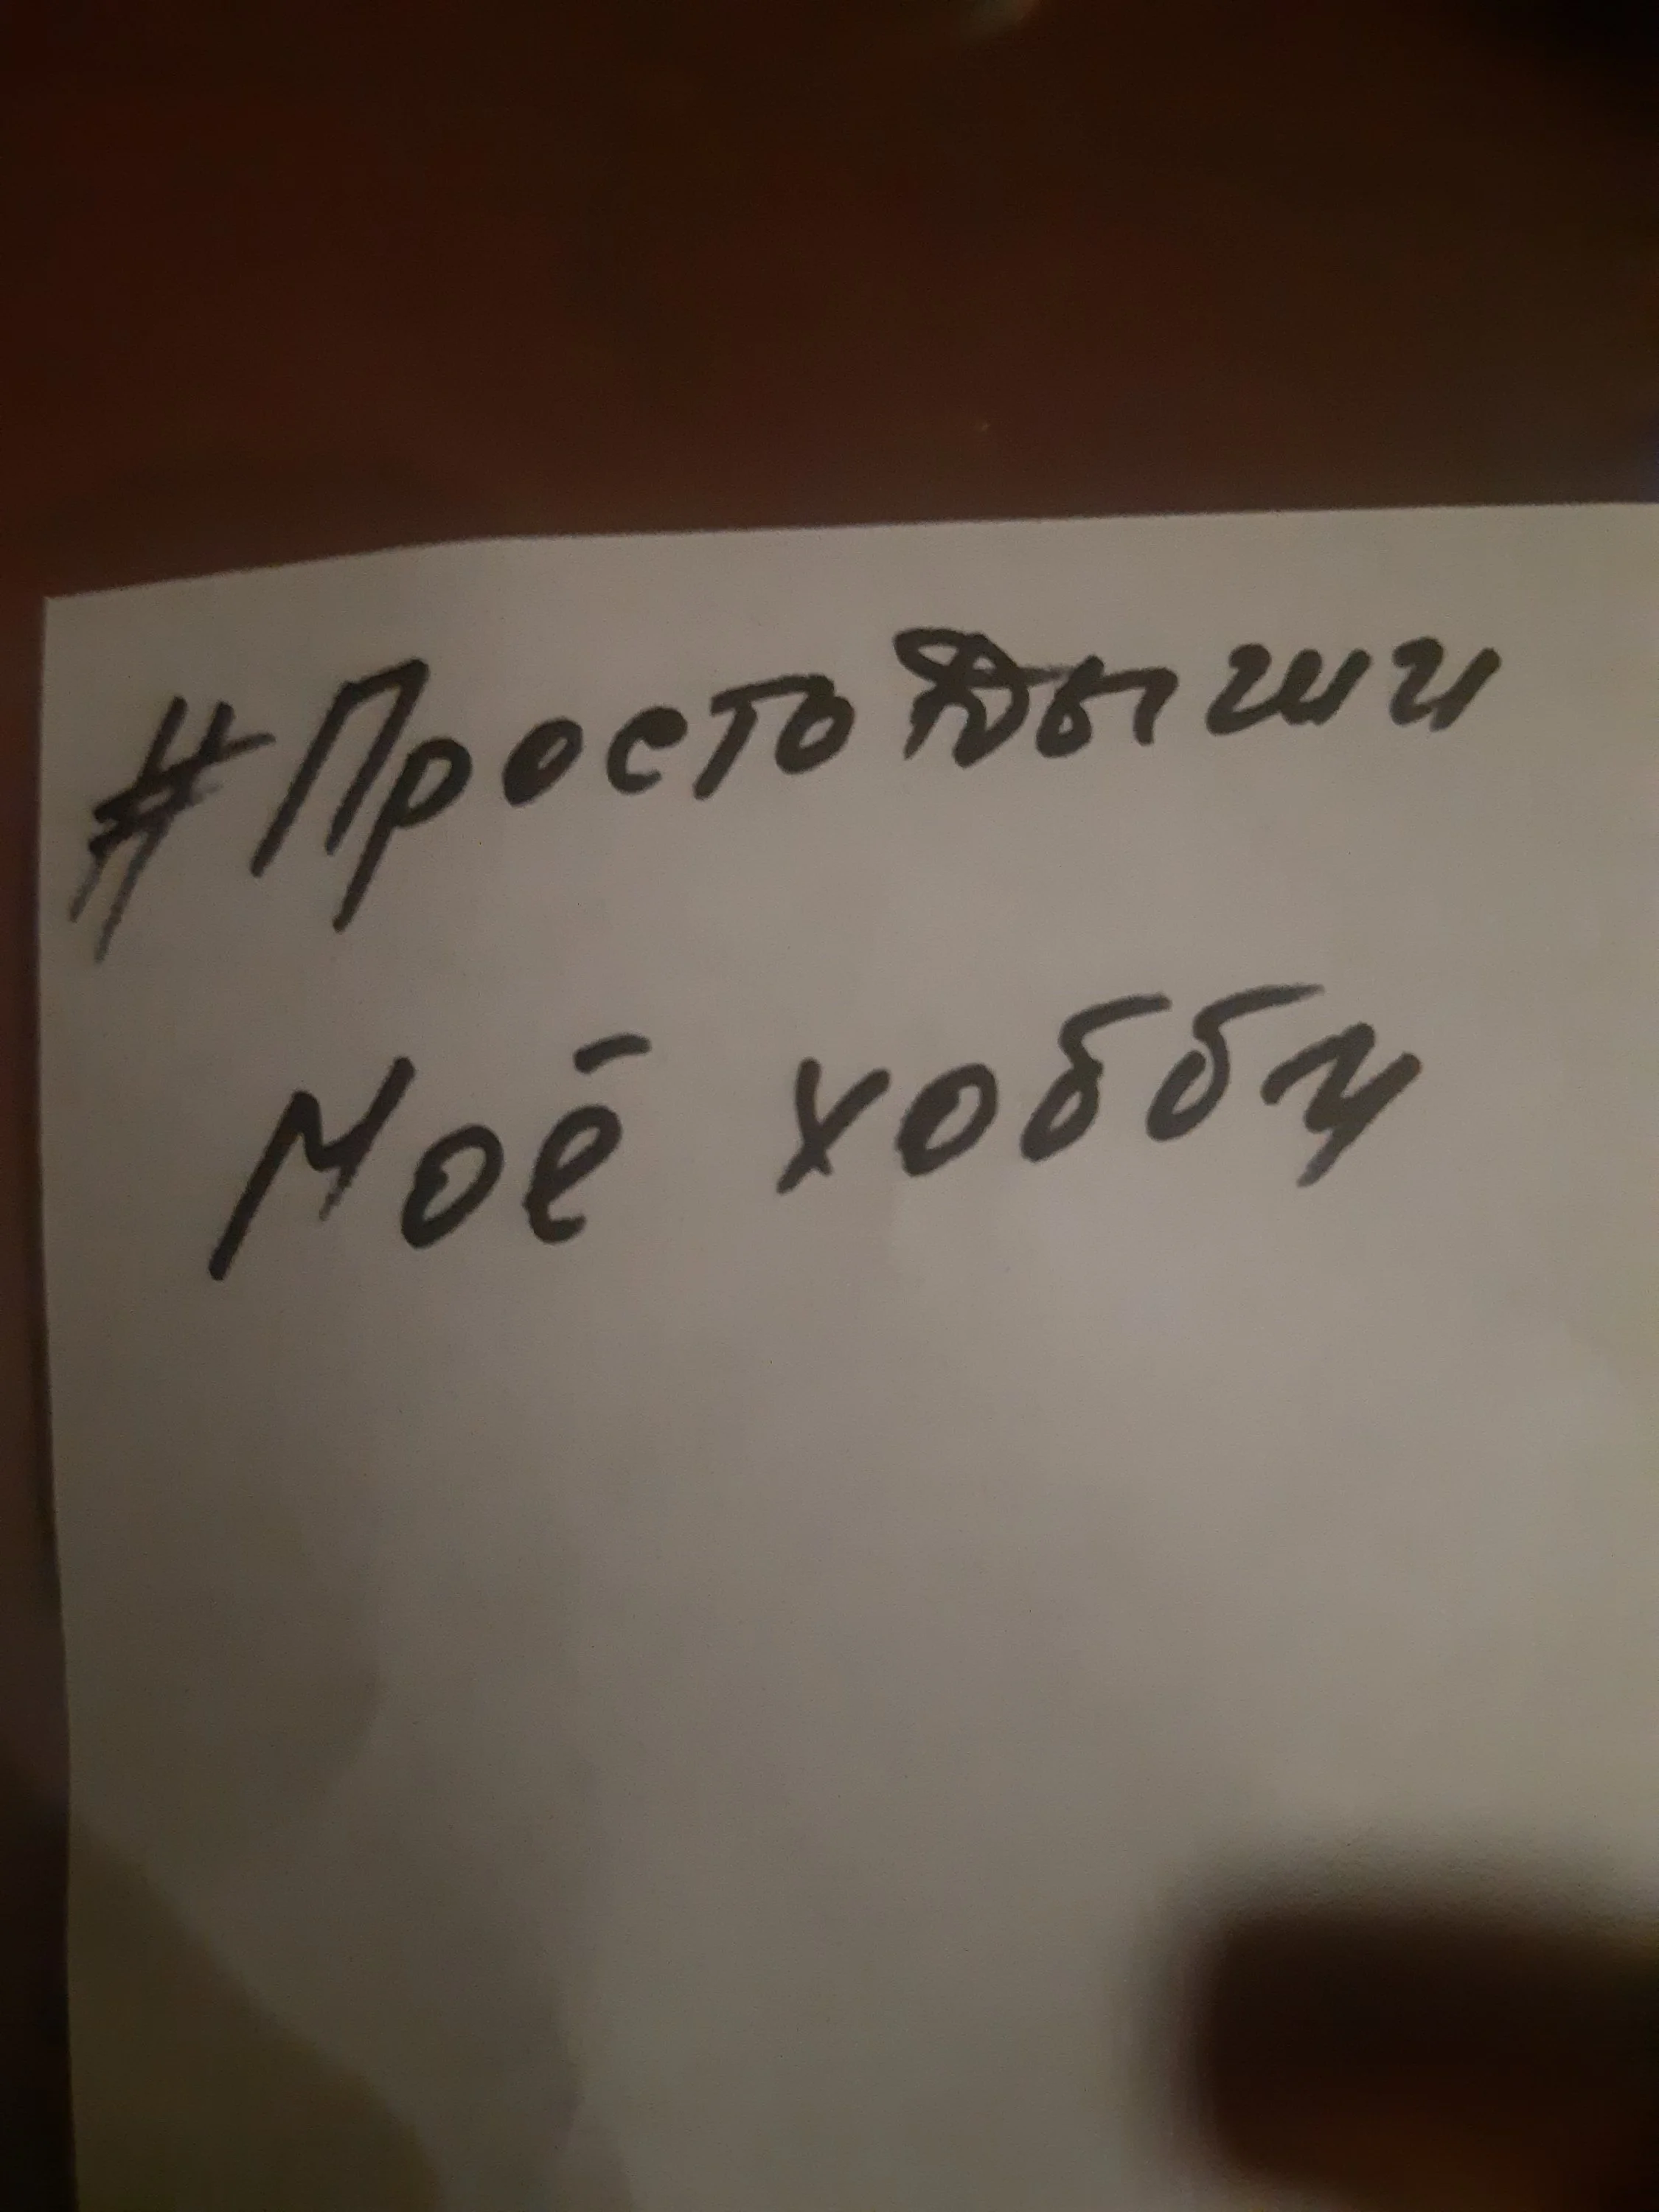 #Простодыши
Моё хобби